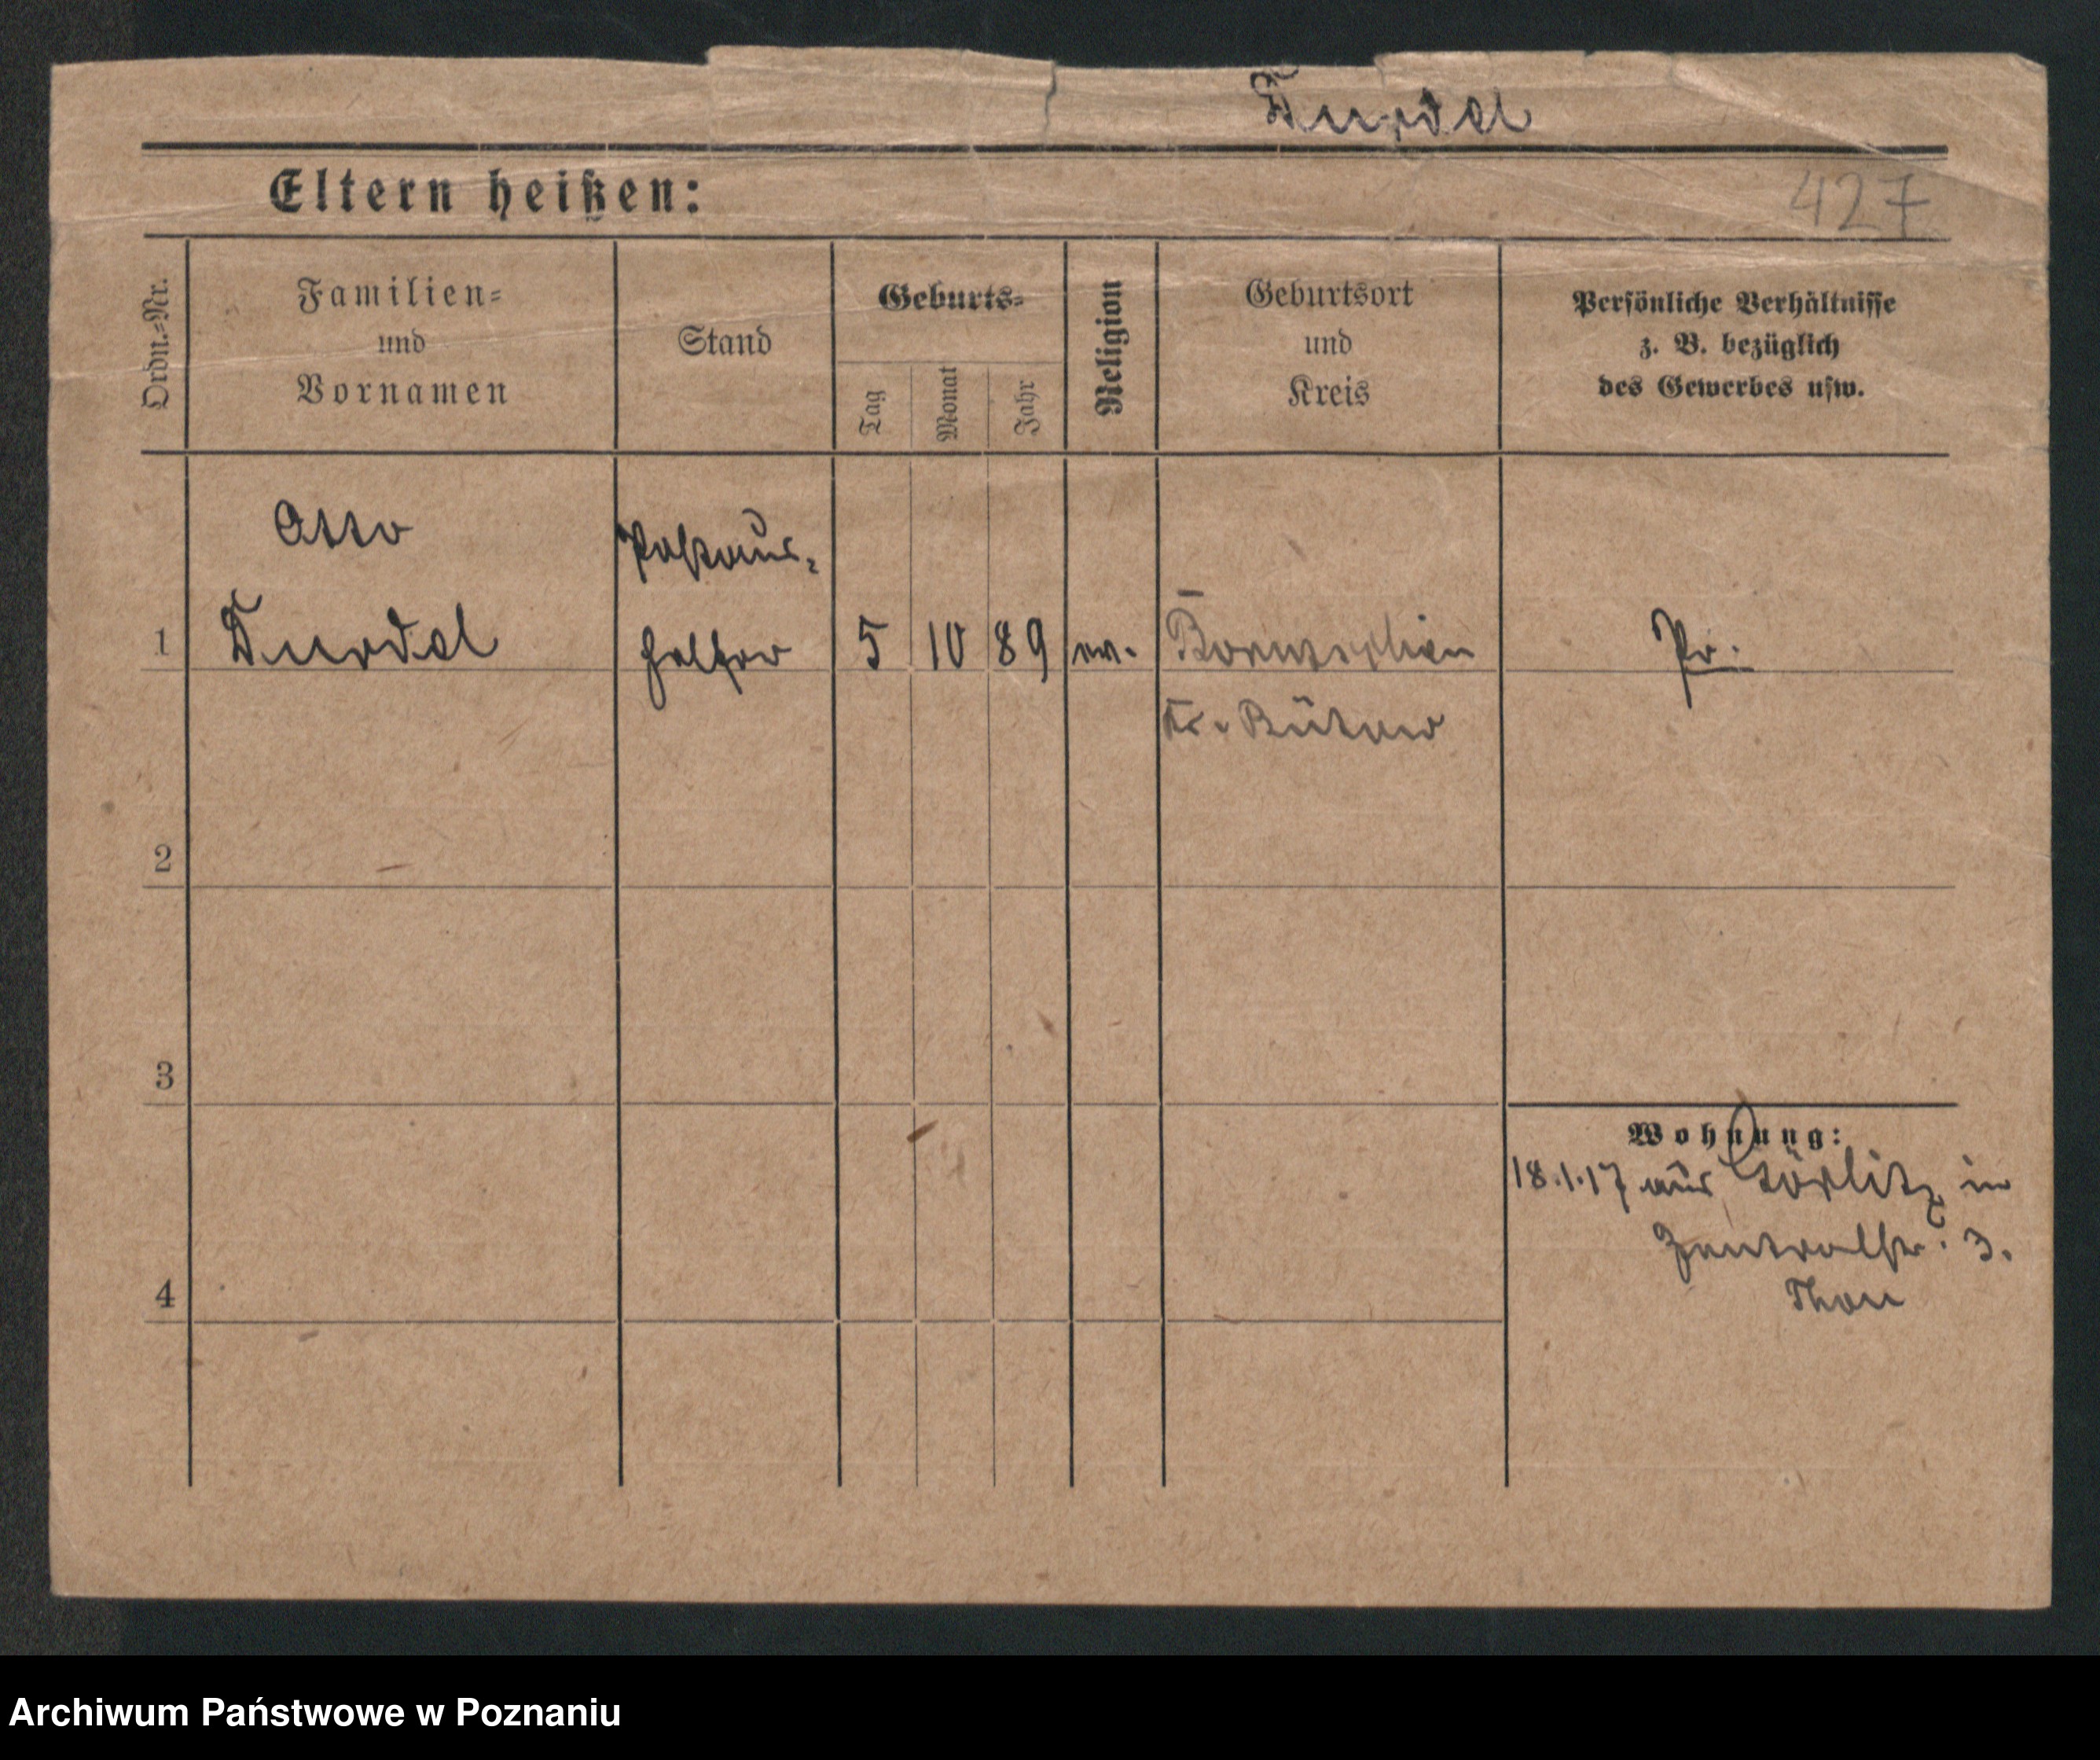 Eltern heißen:
427
Ordn.-Nr.
Familien-
und
Vornamen
Stand
Geburts-
Tag
Monat
Jahr
Religion
Geburtsort
und
Kreis
Persönliche Verhältnisse
z. B. bezüglich
des Gewerbes usw.
Otto
Postaus-
1 helfer 5 10 89 ev. Borntuchen Pr.
Kr. Bütow
2
3
Wohnung:
18.1.17 aus Görlitz in
Zentralstr. 3.
4
Archiwum Państwowe w Poznaniu